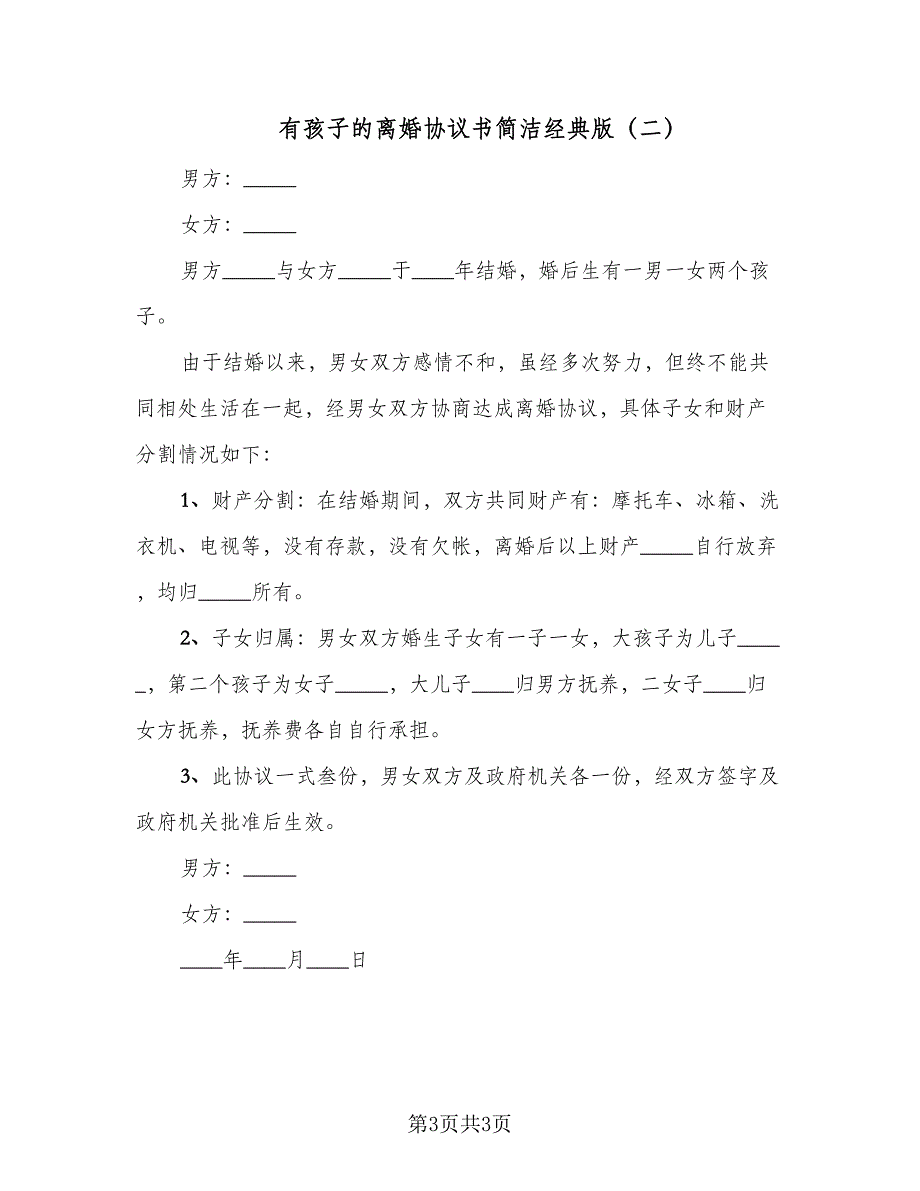 有孩子的离婚协议书简洁经典版（二）
男方：_____
女方：_____
男方_____与女方_____于____年结婚，婚后生有一男一女两个孩
子。
由于结婚以来，男女双方感情不和，虽经多次努力，但终不能共
同相处生活在一起，经男女双方协商达成离婚协议，具体子女和财产
分割情况如下：
1、财产分割：在结婚期间，双方共同财产有：摩托车、冰箱、洗
衣机、电视等，没有存款，没有欠帐，离婚后以上财产_____自行放弃
，均归_____所有。
2、子女归属：男女双方婚生子女有一子一女，大孩子为儿子____
_，第二个孩子为女子_____，大儿子____归男方抚养，二女子____归
女方抚养，抚养费各自自行承担。
3、此协议一式叁份，男女双方及政府机关各一份，经双方签字及
政府机关批准后生效。
男方：_____
女方：_____
____年____月____日
第3页共3页